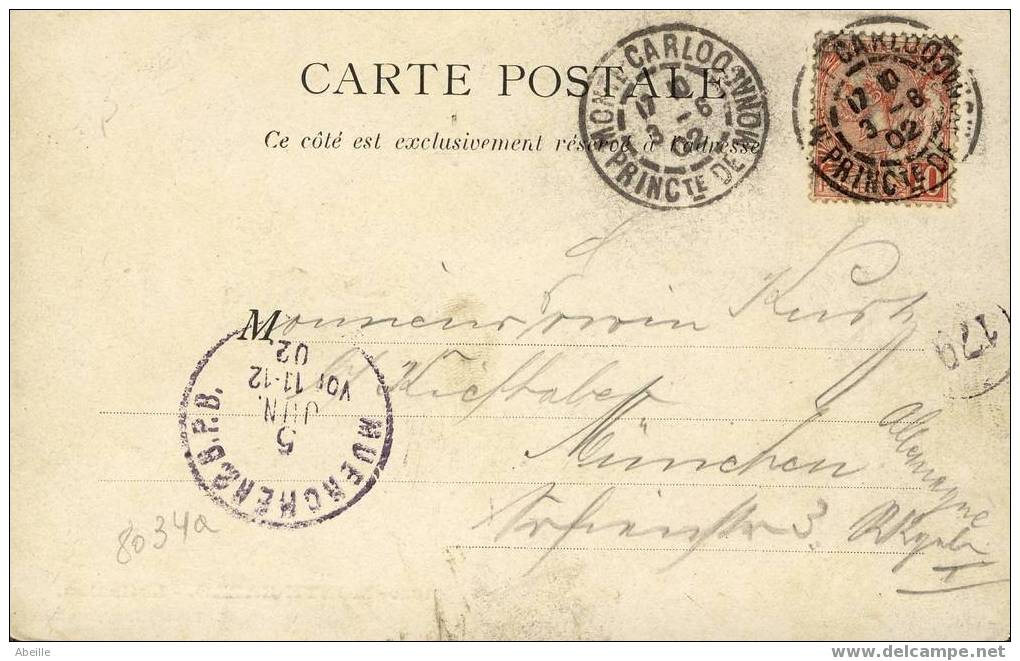 CARTE POSTALE
Ce côté est exclusivement réservé à l'adresse
MONTE CARLO
17 10
3 -6
02
PRINCTE DE MONACO
MONTE CARLO
17 10
3 -6
02
PRINCTE DE MONACO
Monsieur Erwin Kurz
München
Allemagne
Sofienstr 3.
MUENCHEN 2 B.P.B.
5
JUN.
VOR 11-12
02
179
8034a
Abeille
www.delcampe.net